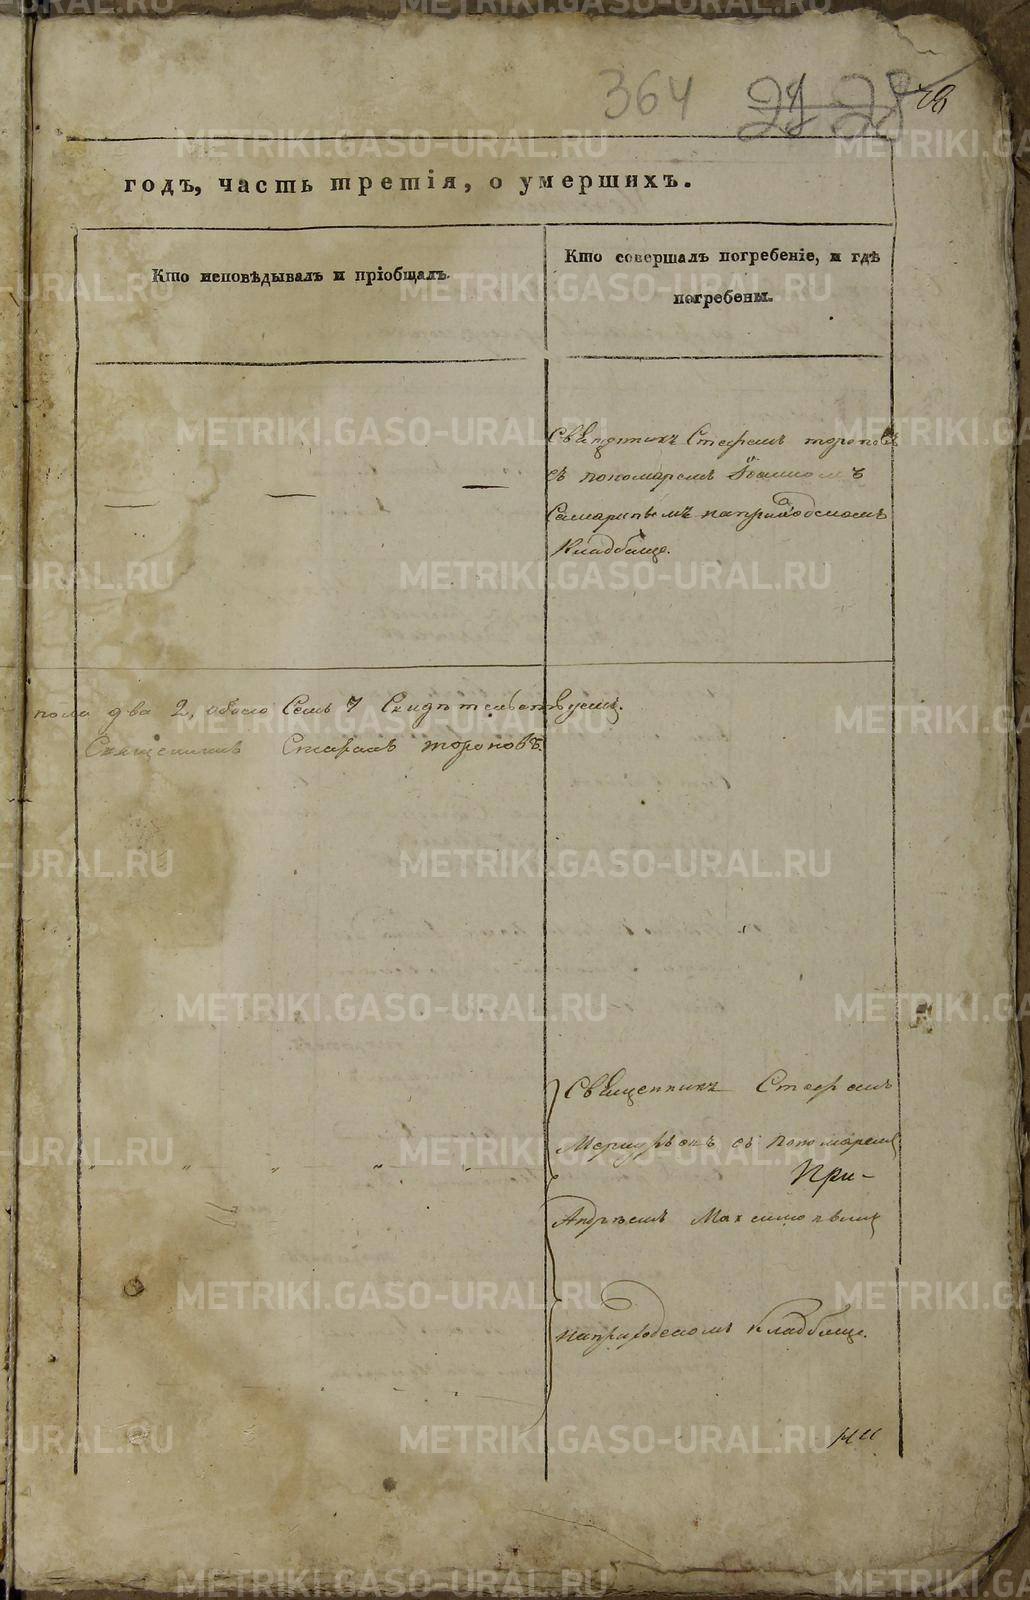 364 28
годъ, часть третія, о умершихъ.
Кто исповѣдывалъ и пріобщалъ.
Кто совершалъ погребеніе, и гдѣ
погребены.
Священникъ Стефанъ Тороповъ
съ пономаремъ Іоанномъ
на приходскомъ
Кладбище.
пола два 2, обоего Семь 7 Свидѣтельствуетъ.
Священникъ Стефанъ Тороповъ
Священникъ Стефанъ
съ пономаремъ
При-
Андреемъ
на приходскомъ кладбище.
METRIKI.GASO-URAL.RU